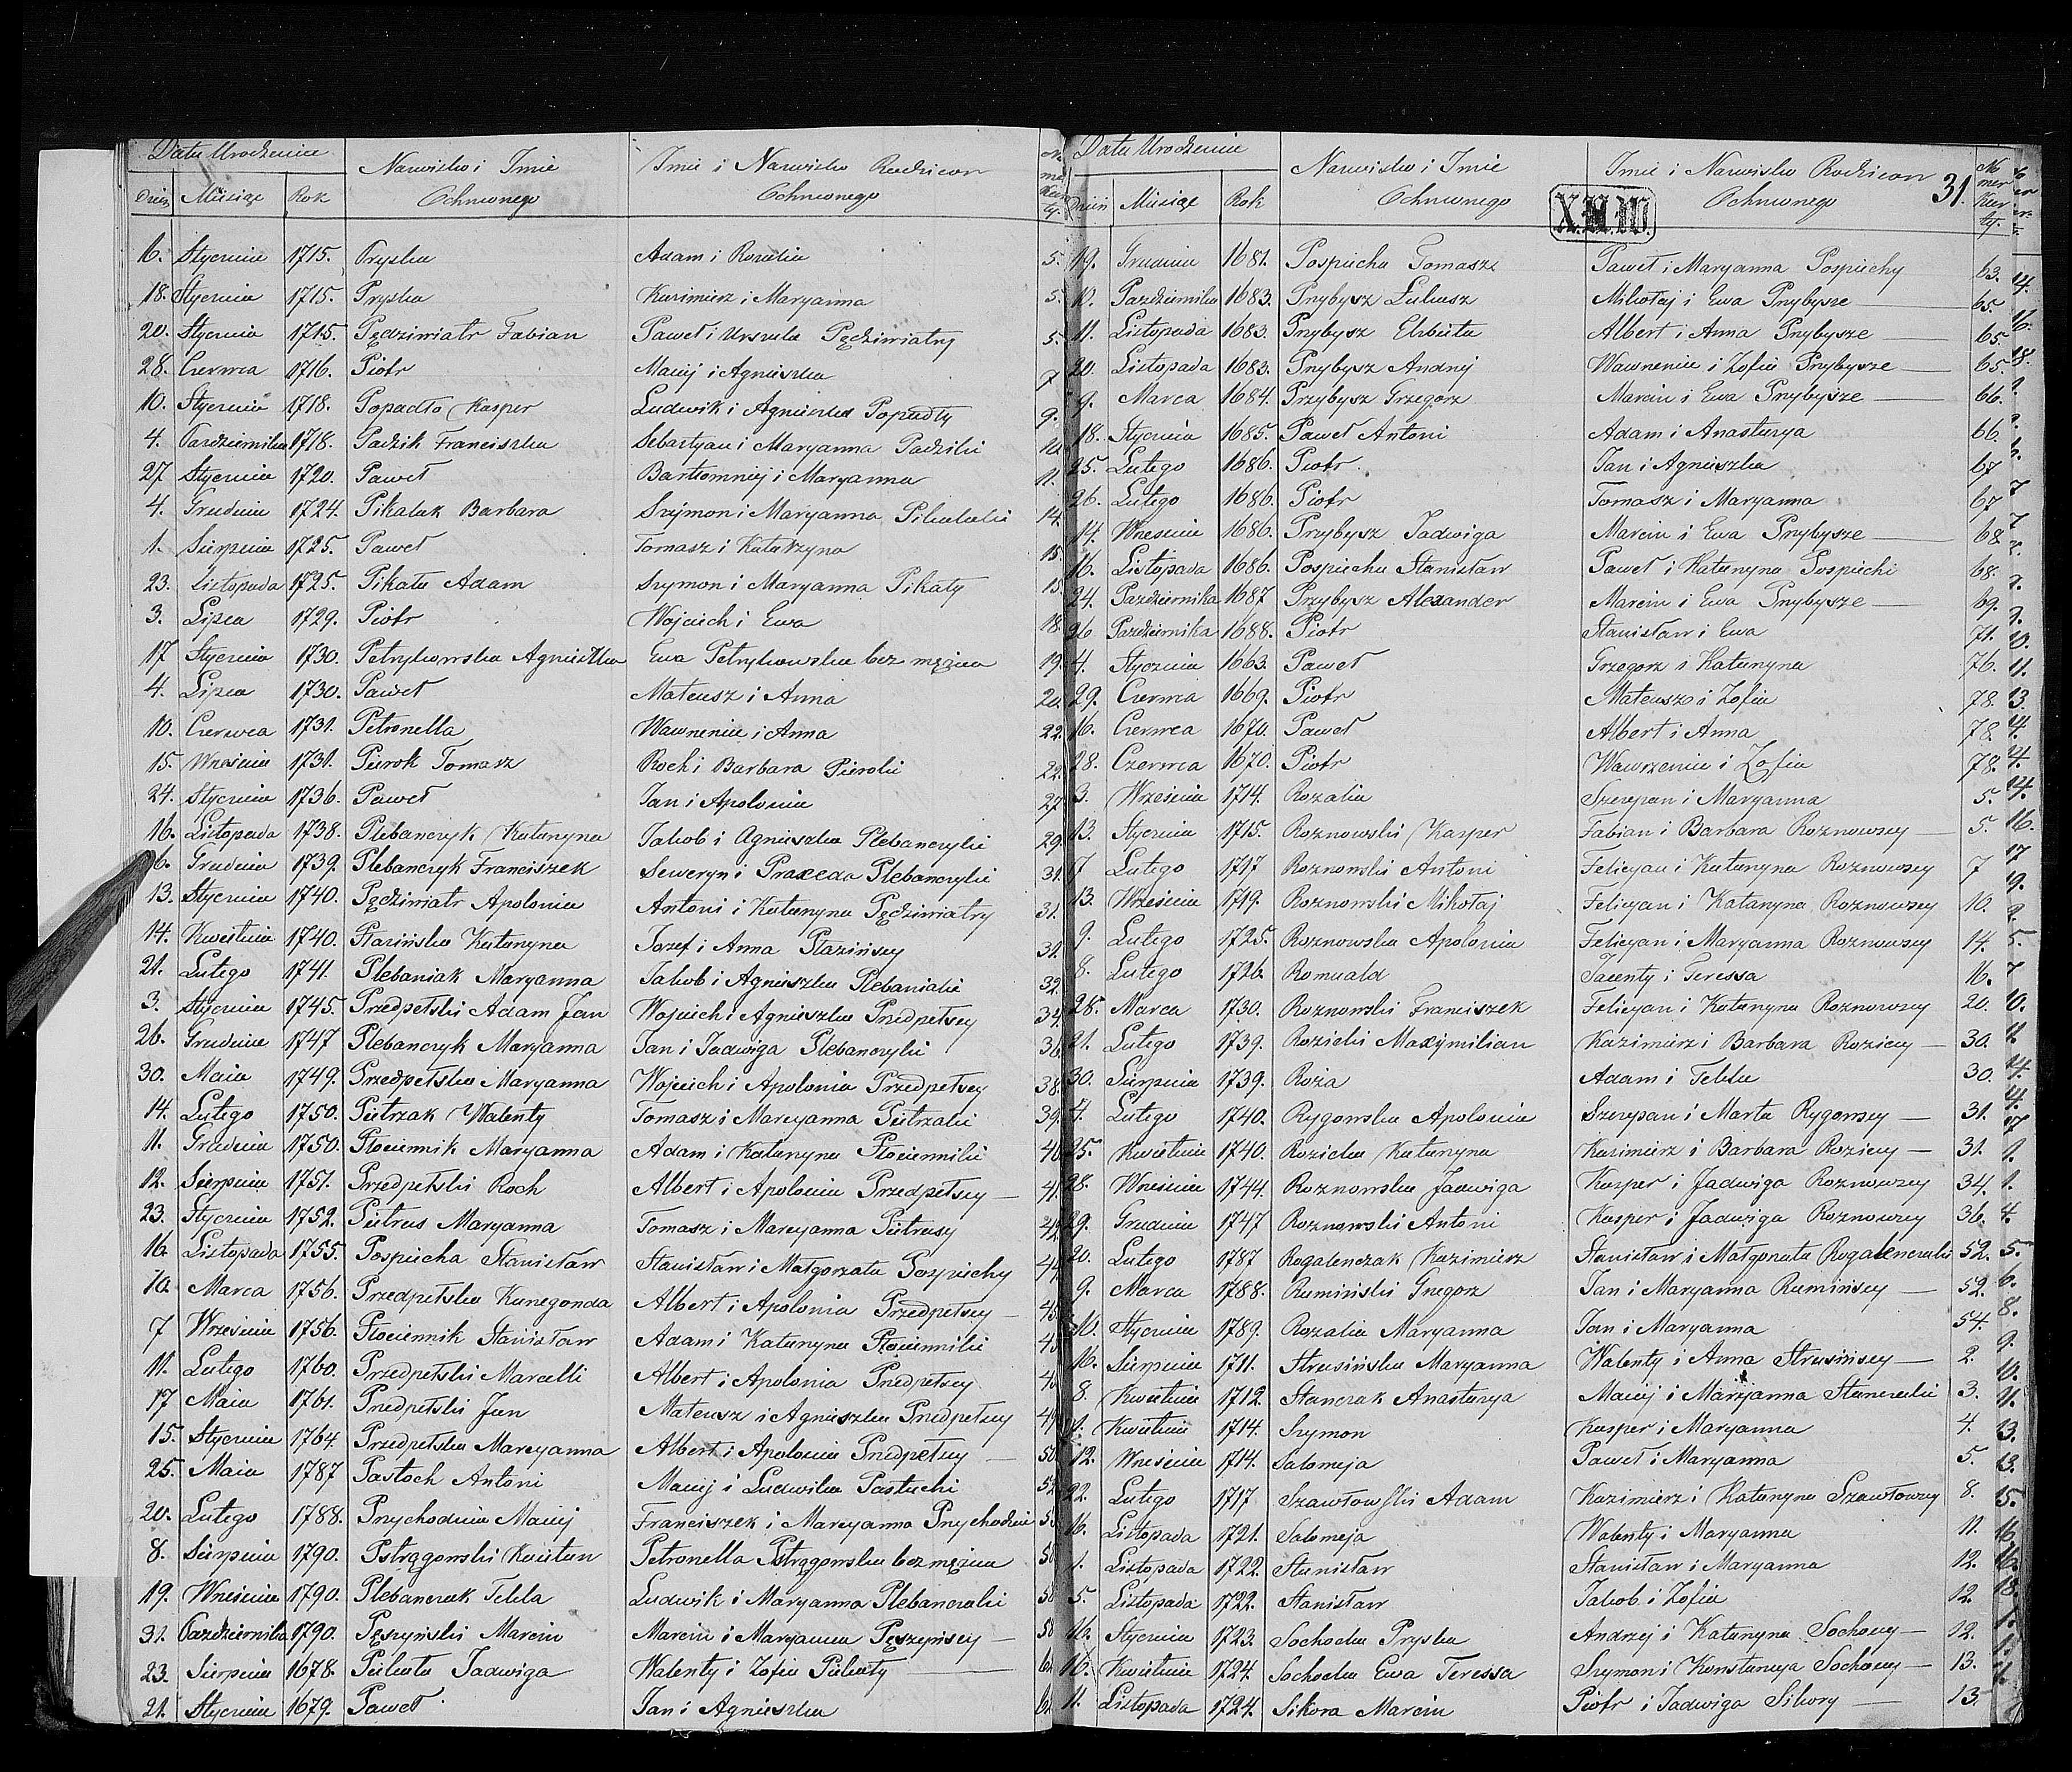 Data Urodzenia
Nazwisko i Imie Ochrzconego
Imie i Nazwisko Rodzicow Ochrzconego
Dzień Miesiąc Rok
6. Stycznia 1715. Pryska Adam i Rozalia 5.
18. Stycznia 1715. Pryska Kazimierz i Maryanna 5.
20. Stycznia 1715. Pędziwiatr Fabian Paweł i Urszula Pędziwiatry 5.
28. Czerwca 1716. Piotr Maciej i Agnieszka 7
10. Stycznia 1718. Popadło Kasper Ludwik i Agnieszka Popadły 9.
4. Października 1718. Padzik Franciszka Sebastyan i Maryanna Padziki 10.
27 Stycznia 1720. Paweł Bartłomniej i Maryanna 11.
4. Grudnia 1724. Pikalak Barbara Szymon i Maryanna Pikalaki 14.
1. Sierpnia 1725. Paweł Tomasz i Katarzyna 15.
23. Listopada 1725. Pikała Adam Szymon i Maryanna Pikały 15.
3. Lipca 1729. Piotr Wojciech i Ewa 18.
17 Stycznia 1730. Petrykowska Agnieszka Ewa Petrykowska bez męzna 19.
4. Lipca 1730. Paweł Mateusz i Anna 20.
10. Czerwca 1731. Petronella Wawrzeniec i Anna 22.
15. Września 1731. Pierok Tomasz Roch i Barbara Pieroki 22.
24. Stycznia 1736. Paweł Jan i Apolonia 27
16. Listopada 1738. Plebanczyk Katarzyna Jakob i Agnieszka Plebanczyki 29.
6. Grudnia 1739. Plebanczyk Franciszek Seweryn i Praxeda Plebanczyki 31.
13. Stycznia 1740. Pędziwiatr Apolonia Antoni i Katarzyna Pędziwiatry 31.
14. Kwietnia 1740. Płazińska Katarzyna Jozef i Anna Płazińscy 31.
21. Lutego 1741. Plebaniak Maryanna Jakob i Agnieszka Plebaniaki 32.
3. Stycznia 1745. Przedpełski Adam Jan Wojciech i Agnieszka Przedpełscy 34.
26. Grudnia 1747 Plebanczyk Maryanna Jan i Jadwiga Plebanczyki 36.
30. Maia 1749. Przedpełska Maryanna Wojciech i Apolonia Przedpełscy 38.
14. Lutego 1750. Pietrzak Walenty Tomasz i Marcyanna Pietrzaki 39.
11. Grudnia 1750. Płociennik Maryanna Adam i Katarzyna Płocienniki 40.
12. Sierpnia 1751. Przedpełski Roch Albert i Apolonia Przedpełscy 41.
23. Stycznia 1752. Pietrus Maryanna Tomasz i Marcyanna Pietrusy 42.
16. Listopada 1755. Pospiecha Stanisław Stanisław i Małgorzata Pospiechy 44
10. Marca 1756. Przedpełska Kunegonda Albert i Apolonia Przedpełscy 45
7 Września 1756. Płociennik Stanisław Adam i Katarzyna Płocienniki 45
11. Lutego 1760. Przedpełski Marcelli Albert i Apolonia Przedpełscy
17 Maia 1761. Przedpełski Jan Mateusz i Agnieszka Przedpełscy 49
15. Stycznia 1764. Przedpełska Marcyanna Albert i Apolonia Przedpełscy 50
25. Maia 1787 Pastoch Antoni Maciej i Ludwika Pastuchi 52
20. Lutego 1788. Przychodnia Maciej Franciszek i Marcyanna Przychodnie
8. Sierpnia 1790. Pstrągowski Kaietan Petronella Pstrągowska bez męzna
19. Września 1790. Plebanczak Tekla Ludwik i Maryanna Plebanczaki
31. Października 1790. Pęszyński Marcin Marcin i Maryanna Pęszyńscy
23. Sierpnia 1678. Piekuta Jadwiga Walenty i Zofia Piekuty
21. Stycznia 1679. Paweł Jan i Agnieszka
Data Urodzenia
Nazwisko i Imie Ochrzconego
Imie i Nazwisko Rodzicow Ochrzconego
31.
Dzień Miesiąc Rok
Numer Karty.
19. Grudnia 1681. Pospiecha Tomasz Paweł i Maryanna Pospiechy 63.
10. Października 1683. Przybysz Łukasz Mikołaj i Ewa Przybysze 65.
11. Listopada 1683. Przybysz Elzbieta Albert i Anna Przybysze 65.
20. Listopada 1683. Przybysz Andrzej Wawrzeniec i Zofia Przybysze 65.
9. Marca 1684. Przybysz Grzegorz Marcin i Ewa Przybysze 66.
18. Stycznia 1685. Paweł Antoni Adam i Anastazya 66.
25. Lutego 1686. Piotr Jan i Agnieszka 67
26. Lutego 1686. Piotr Tomasz i Maryanna 67
14. Września 1686. Przybysz Jadwiga Marcin i Ewa Przybysze 68
16. Listopada 1686. Pospiecha Stanisław Paweł i Katarzyna Pospiechi 68.
24. Października 1687 Przybysz Alexander Marcin i Ewa Przybysze 69.
26 Października 1688. Piotr Stanisław i Ewa 71.
4. Stycznia 1663. Paweł Grzegorz i Katarzyna 76.
29. Czerwca 1669. Piotr Mateusz i Zofia 78.
16. Czerwca 1670. Paweł Albert i Anna 78.
28. Czerwca 1670. Piotr Wawrzeniec i Zofia 78.
3. Września 1714. Rozalia Szczepan i Maryanna 5.
13. Stycznia 1715. Roznowski Kasper Fabian i Barbara Roznowscy 5.
7 Lutego 1717 Roznowski Antoni Felicyan i Katarzyna Roznowscy 7
13. Września 1719. Roznowski Mikołaj Felicyan i Katarzyna Roznowscy 10.
9. Lutego 1725. Roznowska Apolonia Felicyan i Maryanna Roznowscy 14.
8. Lutego 1726. Romuald Jacenty i Teressa 16.
28. Marca 1730. Roznowski Franciszek Felicyan i Katarzyna Roznowscy 20.
21. Lutego 1739. Rozicki Maxymilian Kazimierz i Barbara Roziccy 30.
30. Sierpnia 1739. Roża Adam i Tekla 30.
7. Lutego 1740. Rygowska Apolonia Szczepan i Marta Rygowscy 31.
25. Kwietnia 1740. Rozicka Katarzyna Kazimierz i Barbara Roziccy 31.
28. Września 1744. Roznowska Jadwiga Kasper i Jadwiga Roznowscy 34.
29. Grudnia 1747 Roznowski Antoni Kasper i Jadwiga Roznowscy 36.
20. Lutego 1787 Rogalenczak Kazimierz Stanisław i Małgorzata Rogalenczaki 52.
9. Marca 1788. Rumiński Grzegorz Jan i Maryanna Rumińscy 52.
10. Stycznia 1789. Rozalia Maryanna Jan i Maryanna 54.
16. Sierpnia 1711. Strusińska Maryanna Walenty i Anna Strusińscy 2.
8. Kwietnia 1712. Stanczak Anastazya Maciej i Maryjanna Stanczaki 3.
4. Kwietnia 1714. Szymon Kasper i Maryanna 4.
12. Września 1714. Salomeja Paweł i Maryanna 5.
22. Lutego 1717 Szawłowski Adam Kazimierz i Katarzyna Szawłowscy 8.
16. Listopada 1721. Salomeja Walenty i Maryanna 11.
1. Listopada 1722. Stanisław Stanisław i Maryanna 12.
5. Listopada 1722. Stanisław Jakob i Zofia 12.
16. Stycznia 1723. Sochocka Pryska Andrzej i Katarzyna Sochoccy 12.
16. Kwietnia 1724. Sochocka Ewa Teressa Szymon i Konstancya Sochoccy 13.
11. Listopada 1724. Sikora Marcin Piotr i Jadwiga Sikory 13.